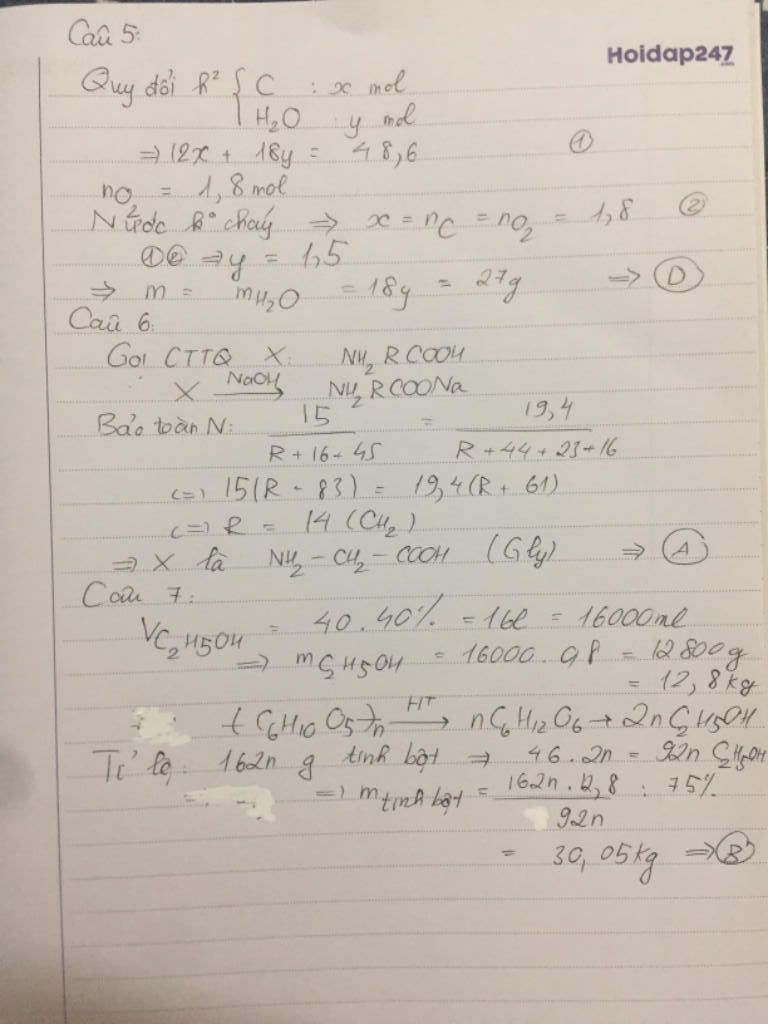 Câu 5:
Hoidap247.com
Quy đổi h² { C : x mol
H₂O : y mol
=> 12x + 18y = 48,6 ①
nO₂ = 1,8 mol
Nước k° cháy => x = nC = nO₂ = 1,8 ②
①② => y = 1,5
=> m = mH₂O = 18y = 27g => Ⓓ
Câu 6:
Gọi CTTQ X: NH₂RCOOH
X —NaOH→ NH₂RCOONa
Bảo toàn N: 15 / (R + 16 + 45) = 19,4 / (R + 44 + 23 + 16)
<=> 15(R + 83) = 19,4(R + 61)
<=> R = 14 (CH₂)
=> X là NH₂ - CH₂ - COOH (Gly) => Ⓐ
Câu 7:
VC₂H₅OH = 40.40% = 16l = 16000ml
=> mC₂H₅OH = 16000.0,8 = 12800g
= 12,8kg
(C₆H₁₀O₅)n —H+→ nC₆H₁₂O₆ → 2nC₂H₅OH
Tỉ lệ: 162n g tinh bột => 46.2n = 92n C₂H₅OH
=> m tinh bột = 162n.12,8 / 92n : 75%
= 30,05kg => Ⓑ